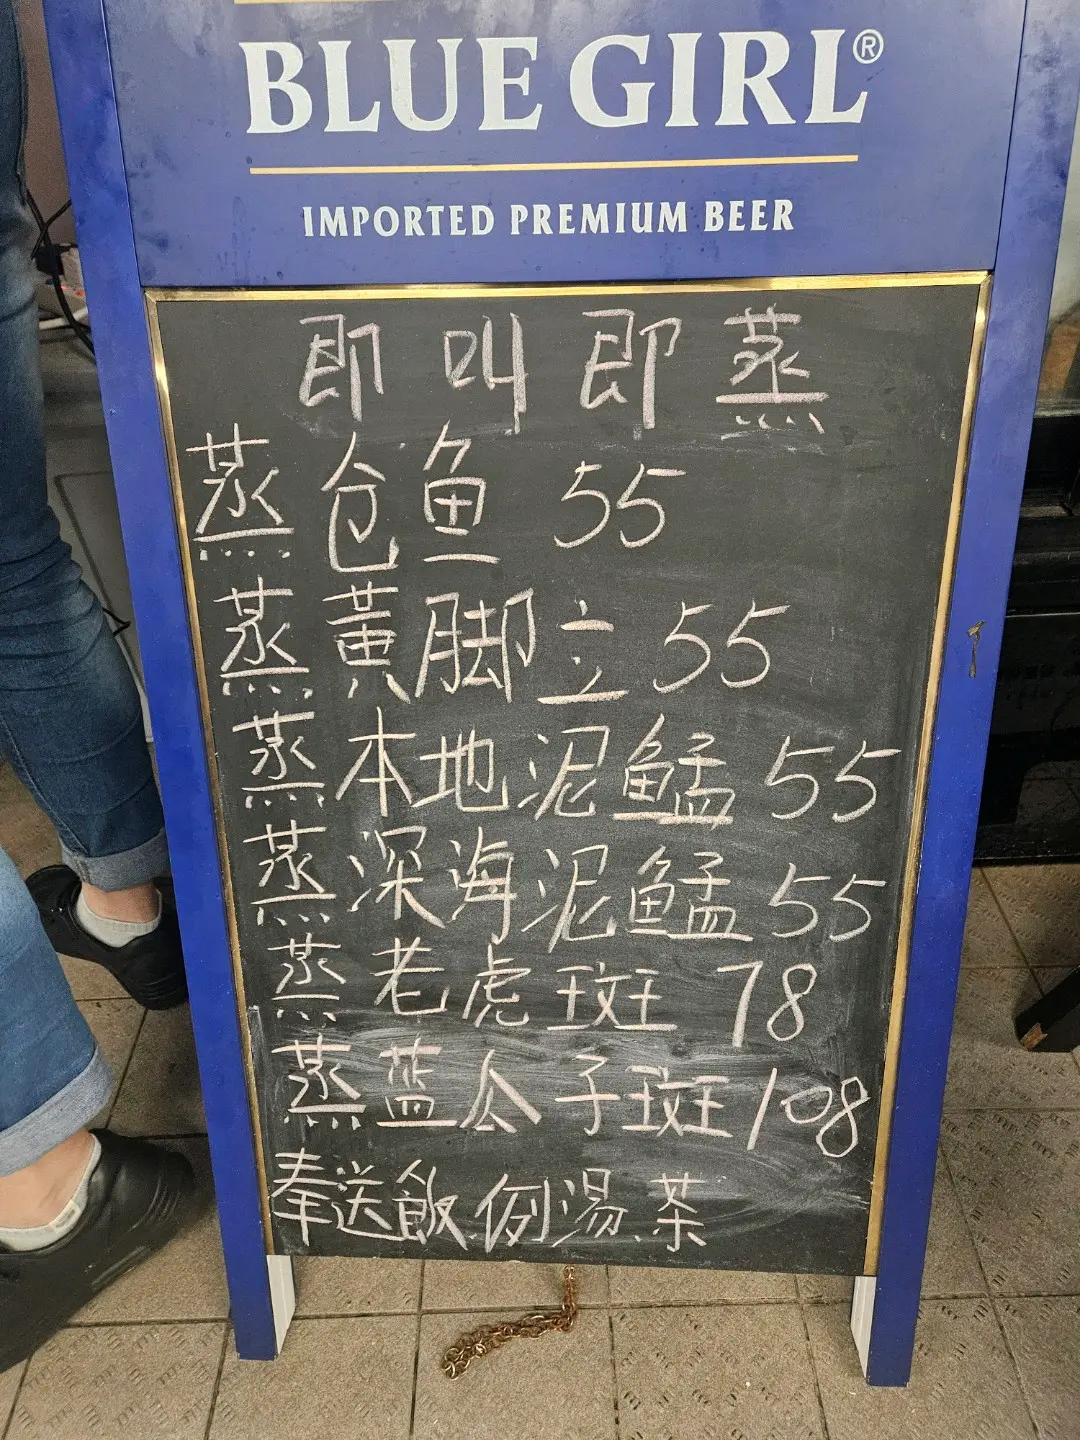 BLUE GIRL®
IMPORTED PREMIUM BEER
即叫即蒸
蒸仓鱼 55
蒸黃脚立 55
蒸本地泥鯭 55
蒸深海泥鯭 55
蒸老虎斑 78
蒸蓝瓜子斑 108
奉送飯、例湯、茶